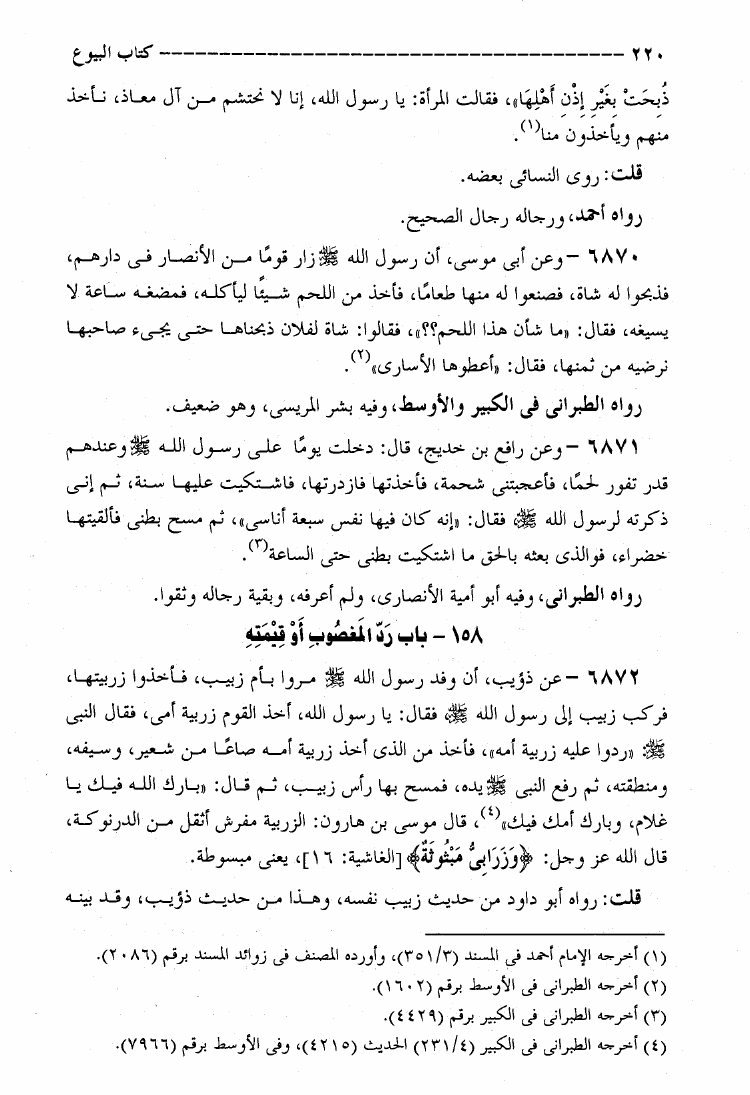 ٢٢٠ ------------------------------------------ كتاب البيوع
ذُبِحَتْ بِغَيْرِ إِذْنِ أَهْلِهَا»، فقالت المرأة: يا رسول الله، إنا لا نحتشم من آل معاذ، نأخذ
منهم ويأخذون منا(١).
قلت: روى النسائى بعضه.
رواه أحمد، ورجاله رجال الصحيح.
٦٨٧٠ – وعن أبى موسى، أن رسول الله ﷺ زار قومًا من الأنصار فى دارهم،
فذبحوا له شاة، فصنعوا له منها طعامًا، فأخذ من اللحم شيئًا ليأكله، فمضغه ساعة لا
يسيغه، فقال: «ما شأن هذا اللحم؟؟»، فقالوا: شاة لفلان ذبحناها حتى يجىء صاحبها
نرضيه من ثمنها، فقال: «أعطوها الأسارى»(٢).
رواه الطبرانى فى الكبير والأوسط، وفيه بشر المريسى، وهو ضعيف.
٦٨٧١ – وعن رافع بن خديج، قال: دخلت يومًا على رسول الله ﷺ وعندهم
قدر تفور لحمًا، فأعجبتنى شحمة، فأخذتها فازدرتها، فاشتكيت عليها سنة، ثم إنى
ذكرته لرسول الله ﷺ فقال: «إنه كان فيها نفس سبعة أناسى»، ثم مسح بطنى فألقيتها
خضراء، فوالذى بعثه بالحق ما اشتكيت بطنى حتى الساعة(٣).
رواه الطبرانى، وفيه أبو أمية الأنصارى، ولم أعرفه، وبقية رجاله وثقوا.
١٥٨ – باب رَدّ المَغصُوبِ أَوْ قِيْمَتِهِ
٦٨٧٢ – عن ذؤيب، أن وفد رسول الله ﷺ مروا بأم زبيب، فأخذوا زربيتها،
فركب زبيب إلى رسول الله ﷺ فقال: يا رسول الله، أخذ القوم زربية أمى، فقال النبى
ﷺ: «ردوا عليه زربية أمه»، فأخذ من الذى أخذ زربية أمه صاعًا من شعير، وسيفه،
ومنطقته، ثم رفع النبى ﷺ يده، فمسح بها رأس زبيب، ثم قال: «بارك الله فيك يا
غلام، وبارك أمك فيك»(٤)، قال موسى بن هارون: الزربية مفرش أثقل من الدرنوكة،
قال الله عز وجل: ﴿وَزَرَابِىُّ مَبْثُوثَةٌ﴾ [الغاشية: ١٦]، يعنى مبسوطة.
قلت: رواه أبو داود من حديث زبيب نفسه، وهذا من حديث ذؤيب، وقد بينه
(١) أخرجه الإمام أحمد فى المسند (٣٥١/٣)، وأورده المصنف فى زوائد المسند برقم (٢٠٨٦).
(٢) أخرجه الطبرانى فى الأوسط برقم (١٦٠٢).
(٣) أخرجه الطبرانى فى الكبير برقم (٤٤٢٩).
(٤) أخرجه الطبرانى فى الكبير (٢٣١/٤) الحديث (٤٢١٥)، وفى الأوسط برقم (٧٩٦٦).